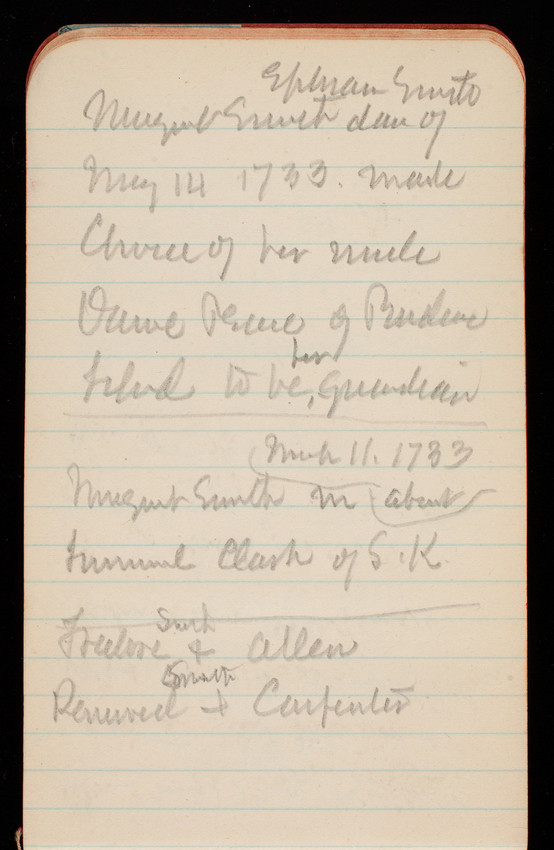 Ephram Smith
Margaret Smith dau of
May 14 1733. made
Choice of her uncle
Daniel Pearce of Prudence
Island to be her Guardian
March 11. 1733
Margaret Smith m about
Samuel Clark of S. K.
Smith
Freelove & Allen
Smith
Renewed & Carpenter